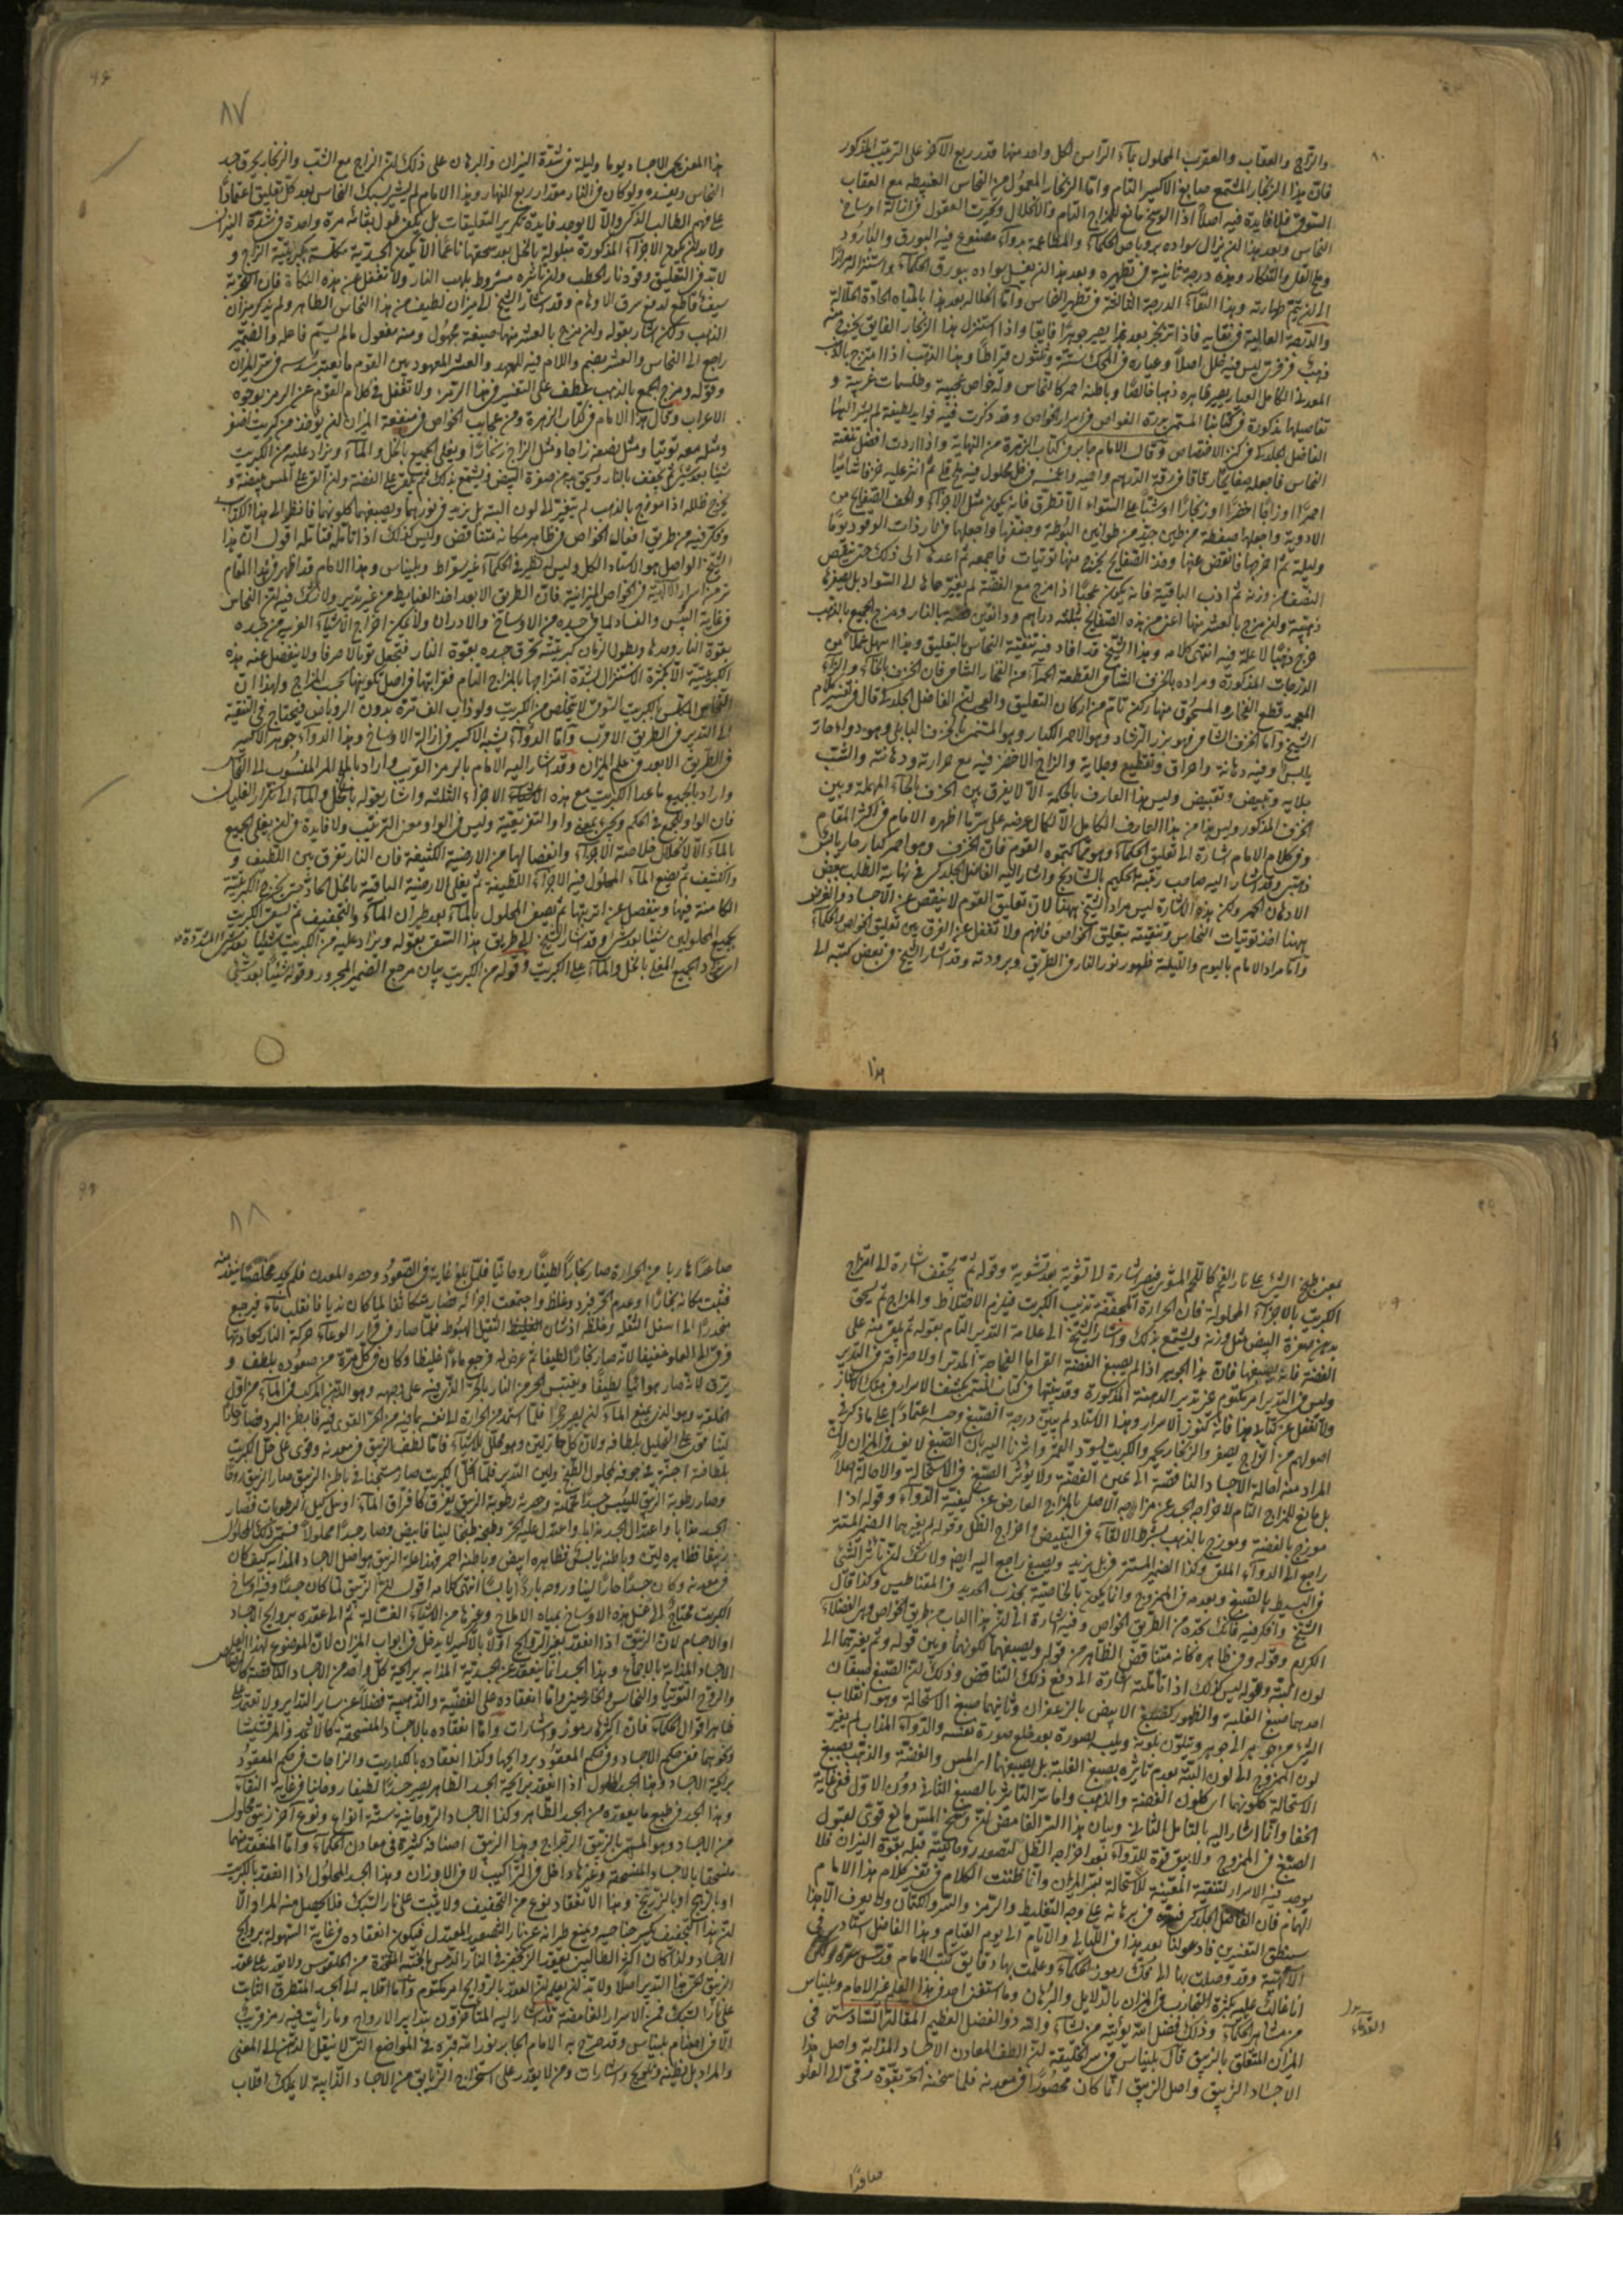 والزاج والعقاب والعقرب المحلول بماء الراس لكل واحد منها قدر ربع الآخر على الترتيب المذكور
فان هذا الزنجار المشمع صابغ الاكسير التام واما الزنجار المعمول من النحاس مع العقاب
السوقى فلا فايدة فيه اصلا اذا الوسخ مانع للمزاج التام والانحلال
النحاس وبعد هذا ان يزال سواده بروباص الحكماء مصنوع فيه البورق
وملح القلى والتنكار وهذه درجة ثانية فى تطهيره وبعد هذا ان يغسل سواده ببورق الحكماء واستنزاله مرارا
الى ان يتم طهارته وهذا النقاء الدرجة الثالثة فى تطهير النحاس واما انحلاله بعد هذا بالمياه الحادة الحلالة
فاذا تزنجر بعد هذا يصير جوهرا فايقا واذا استنزل هذا الزنجار الفايق يخرج منه
ذهب ليس فيه ظل اصلا وعياره فى المحك ستة وثلثون قيراطا وهذا الذهب اذا امتزج بالذهب
المعدنى الكامل العيار يصير ظاهره ذهبا خالصا وباطنه احمر كالنحاس وله خواص عجيبة وطلسمات غريبة و
تفاصيلها مذكورة فى كتابنا المسمى بدرة الغواص فى اسرار الخواص وقد ذكرت فيه فوايد لطيفة لم يشر اليها
الفاضل الجلدكى فى كنز الاختصاص وقال الامام جابر فى كتاب الزهرة من النهاية واذا اردت افضل تنقية
النحاس فاجعله صفايح رقاقا فى رقة الدرهم واحميه واغمسه فى خل محلول فيه ملح قلى ثم انثر عليه خزفا شاميا
احمرا او زاجا اخضرا او زنجارا او شبا على السواء
الادوية واجعلها مضغطة من طين جيد من طوابين البوطة وجففها واجعلها فى الوقود يوما
وليلة ثم اخرجها فانفض عنها وخذ الصفايح يخرج منها توتيات فاجمعه ثم اعدها الى ذلك حتى ينقص
النصف من وزنه ثم اذب الباقية فانه يكون عجبا اذا مزج مع الفضة لم يغير حالها الى السواد بل يصيرها
ذهبية وان مزج بالعشر منها اعنى من هذه الصفايح بثلثة دراهم ودانقين فضة بالنار ومزج الجميع بالذهب
خرج ذهبا لا علة فيه انتهى كلامه وهذا الشيخ قد افاد فيه تنقية النحاس بالتعليق وهذا اسهل عملا من
الدرجات المذكورة ومراده بالخزف الشامى القطعة الحمراء من الفخار الشامى فان الخزف بالخاء والزاء
المعجمة قطع الفخار والمسحوق منها ركن تام من اركان التعليق والعجب ان الفاضل الجلدكى قال فى تفسير كلام
الشيخ واما الخزف الشامى فهو بزر الرشاد وهو الاحمر الكبار وهو المسمى بالخزف البابلى وهو دواء حار
يابس وفيه دهانة واحراق وتقطيع وجلاية والزاج الاخضر فيه مع حرارته ودهانته والشب
جلاية وتبييض وتقبيض وليس هذا العارف بالحكمة الا لا يفرق بين الخزف بالخاء المهملة وبين
الخزف المذكور وليس هذا من هذا العارف الكامل الا لكمال غرضه على ستر ما اظهره الامام فى اكثر المقام
وفى كلام الامام اشارة الى تعليق الحكماء وهو مما كتموه القوم فان الخزف وهو احمر كبار حار يابس
وقد اشار اليه صاحب رتبة الحكيم بالشاذنج واشار اليه الفاضل الجلدكى فى نهاية الطلب ببعض
الادهان الحمر ولكن هذه الاشارة ليس مراد الشيخ ههنا لان تعليق القوم لا ينقص عن الاجساد والغرض
ههنا اخذ توتيات النحاس وتنقيته بتعليق الخواص فافهم ولا تغفل عن الفرق بين تعليق الخواص والحكماء
واما مراد الامام باليوم والليلة ظهور نور النار فى الطريق وبرودته وقد اشار الشيخ فى بعض كتبه الى
هذا
٨٧
هذا المعنى بحمى الاجساد يوما وليلة فى شدة النيران والبرهان على ذلك ان الزاج مع الشب والزنجار يحرق جسد
النحاس ويفسده ولو كان فى النار مقدار ربع النهار وهذا الامام لم يشر لسبك النحاس بعد كل تعليق اعتمادا
على فهم الطالب الذكى والا لا يوجد فايدة تكرير التعليقات بل يكفى طول بقائه مرة واحدة فى شدة النيران
ولا بد ان يكون الاجزاء المذكورة مبلولة بالخل بعد سحقها ناعما
لابد فى التعليق وقود نار الحطب ولان تاثيره مشروط بلهب النار ولا تغفل عن هذه النكاة فان التجربة
سيف قاطع لدفع سرق الاوهام وقد اشار الشيخ الى ميزان لطيف من هذا النحاس الطاهر ولم يذكر ميزان
الذهب ولكن اشار بقوله وان مزج بالعشر منها صيغة مجهول ومنه مفعول ما لم يسم فاعله والضمير
راجع الى النحاس والعشر بضم واللام فيه للعهد والعشر المعهود بين القوم ما يعتبر سدسه فى سر الميزان
وقوله ومزج الجميع بالذهب عطف على التفسير فى هذا الرمز ولا تغفل فى كلام القوم عن الرمز بوجوه
الاعراب وقال هذا الامام فى كتاب الزهرة ومن عجايب الخواص فى منفعة الميزان ان يؤخذ من كبريت اصفر
ومثله معه توتيا ومثل نصفه زاجا ومثل الزاج زنجارا ويغلى الجميع بالخل والماء ويزاد عليه من الكبريت
شيئا بعد شئ ثم يجفف بالنار ويسحق بدهن صفرة البيض ويشمع بذلك ثم يلقى على الفضة وان القى على المس بيضه و
يخرج ظله اذا مزج بالذهب لم يتغير الى لون البتة بل يزيد فى نورهما ويصبغهما كلونهما فانظر الى هذا الكتاب
وفكر فيه من طريق افعال الخواص فى ظاهره كانه متناقض وليس كذلك اذا تاملته فتامله اقول ان هذا
الشيخ الواصل هو الاستاد الكل وليس له نظير فى الحكماء غير سقراط وبليناس وهذا الامام قد اظهر فى هذا المقام
سر من اسرار الالهية فى الخواص الميزانية فان الطريق الابعد اخذ من غير تدبير ولا شك فيه ان النحاس
فى غاية اليبس والفساد لما فى جسده من الاوساخ والادران ولا يمكن اخراج الاشياء الغريبة من جسده
بقوة النار وحدها وبطول الزمان كبريتيته تحرق جسده بقوة النار فتجعل توبالا صرفا ولا ينفصل عنه هذه
الكبريتية الا بكثرة الاستنزال لشدة امتزاجها بالمزاج التام لقرابتها فى اصل تكوينها بحسب المزاج ولهذا ان
النحاس المكلس بالكبريت السوقى لا يتخلص من الكبريت ولو ذاب الف مرة بدون الروباص فيحتاج فى التنقية
الى التدبير فى الطريق الاقرب واما الدواء يشبه الاكسير فى ازالة الاوساخ وهذا الدواء جوهر الاكسير
فى الطريق الابعد فى علم الميزان وقد اشار اليه الامام بالرمز القريب واراد بالملح المر المنسوب الى النحاس
واراد بالجميع ما عدا الكبريت مع هذه الاجزاء الثلثة واشار بقوله بالخل والماء الى تكرار الغليان
فان الواو للجمع فى الحكم ويجئ بمعنى واو التفريقية وليس فى الواو معنى الترتيب ولا فايدة فى ان يغلى الجميع
بالماء الا لانحلال خلاصة الاجزاء وانفصالها من الارضية الكثيفة فان النار تفرق بين اللطيف و
والكثيف ثم يضع الماء المحلول فيه الاجزاء اللطيفة ثم يغلى الارضية الباقية بالخل الحاد حتى يخرج الكبريتية
الكامنة فيها وينفصل عن اتربتها ثم يصفى المحلول بالماء بعد طيران الماء والتجفيف ثم يسقى الكبريت
بجميع المحلولين شيئا بعد شئ وقد اشار الشيخ الى طريق هذا السقى بقوله ويزاد عليه من الكبريت شيئا بعد شئ
اى يزاد الجميع المغلى بالخل والماء على الكبريت وقوله من الكبريت بيان مرجع الضمير المجرور وقوله شيئا بعد شئ
بمعنى طبخ الشئ على نار الفحم كاللحم المشوى فهو اشارة الى تشوية بعد تشوية وقوله ثم يجفف اشارة الى امتزاج
الكبريت بالاجزاء المحلولة فان الحرارة المجففة تذيب الكبريت فيلزم الاختلاط والمزاج ثم يسحق
بدهن صفرة البيض مثل وزنه ويشمع بذلك واشار الشيخ الى علامة التدبير التام بقوله ثم يلقى منه على
الفضة فانه يصبغها فان هذا الجوهر اذا لم يصبغ الفضة
وليس فى التدبير امر مكتوم غير تدبير الدهنة المذكورة وقد بينتها فى كتاب المسمى بكشف الاسرار فى هتك الاستار
ولا تغفل عن كتابنا هذا فانه كنوز الاسرار وهذا الاستاد لم يبين درجة الصبغ وحده اعتمادا على ما ذكر فى
اصولهم من ان الزاج يصفر والزنجار يحمر والكبريت يسود القمر واشرنا اليه بان الصبغ لا يفيد فى الميزان لان
المراد منه احالة الاجساد الناقصة الى عين الفضة ولا يؤثر الصبغ فى الاستحالة والاحالة اصلا
بل مانع للمزاج التام لاخراجه الجسد عن مزاجه الاصلى بالمزاج العارض عن كيفية الدواء وقوله اذا
موزج بالفضة وموزج بالذهب بشرط الالقاء فى التبييض واخراج الظل وقوله لم يغيرهما الضمير المستتر
راجع الى الدواء الملقى وكذا الضمير المستتر فى بل يزيد ويصبغ راجع اليه ايضا ولا شك ان تاثير الشئ
فى البسيط بالصبغ وبعدمه فى الممزوج وانما يكون بالخاصية بجذب الحديد فى المغناطيس وكذا قال
الشيخ وافكر فيه فانك تجده من الطريق الخواص وفيه اشارة الى ان هذا الباب من طريق الخواص
الكريم وقوله وفى ظاهره كانه متناقض الظاهر من قوله ويصبغهما كلونهما وبين قوله ولم يغيرهما الى
لون البتة وقوله ليس كذلك اذا تاملته اشارة الى دفع ذلك التناقض وذلك ان الصبغ صبغان
احدهما صبغ الغلبة والظهور كصبغ الابيض بالزعفران وثانيهما صبغ الاستحالة وهو انقلاب
الشئ من جوهر الى جوهر ويتلون بلونه ويلبس بصورة بعد خلع صورة نفسه والدواء المذاب لم يغير
لون الممزوج الى لون البتة بعدم تاثيره بصبغ الغلبة بل يصبغهما اى المس والفضة والذهب بصبغ
الاستحالة كلونهما اى كلون الفضة والذهب واما سر التاثير بالصبغ الثانى دون الاول ففى غاية
الخفا وانما اشار اليه بالتامل الثالث وبيان هذا السر الغامض ان وسخ المس مانع قوى لقبول
الصبغ فى الممزوج ولا يبقى قوة الدواء بعد اخراجه الظل
يوجد فيه الاسرار لتنقية المعينة للاستحالة بسر الميزان وانما ظننت الكلام فى تفسير كلام هذا الامام
الهمام فان الفاضل الجلدكى فسره فى برهانه على وجه التغليظ والرمز والستر والكتمان ولا يعرف الا بهذا
سنطق التفسير فادعو لنا بعد هذا فى الليالى والايام الى يوم القيام وهذا الفاضل استادى فى
الالهية وقد وصلت بها الى فك رموز الحكماء وعلمت بها دقايق كتب الامام قدس سره ولكنى
انا غالب عليه بكثرة التجارب فى الميزان بالدلايل والبرهان وما استغنى احد فى هذا العلم عن الامام وبليناس
من مشاهير الحكماء وذلك فضل الله يؤتيه من يشاء والله ذو الفضل العظيم المقالة السادسة فى
الميزان المتعلق بالزيبق قال بليناس فى سر الخليقة ان الطف المعادن الاجساد المذابة واصل هذا
الاجساد الزيبق واصل الزيبق انما كان محصورا فى معدنه فلما سخنه الحر بقوة رقى الى العلو
صاعدا
٨٨
صاعدا هاربا من الحرارة صار بخارا لطيفا روحانيا فلما بلغ غاية فى الصعود وحصره المعدن فلم يجد مخلصا ينفذ منه
فثبت مكانه بخارا وعدم الحر فبرد وغلظ واجتمعت اجزائه فصار متكاثفا لما كان نديا فانقلب ماء فرجع
منحدرا الى اسفل الثقله وغلظه اذ شان الغليظ الثقيل الهبوط فلما صار فى قرار الوعاء حركة النار كعادتها
فرقى الى العلو خفيفا لانه صار بخارا لطيفا ثم عرض له فرجع ماء غليظا وكان فى كل مرة من صعوده يلطف و
يرق لانه صار هوائيا لطيفا ويقتبس الحر من النار بالحر الذى فيه على دهنه وهو الدهن المركب فى الماء من اول
الخلقة وهو الذى يمنع الماء ان يصير حجرا فلما استمد من الحرارة لنفسه بما فيه من الحر القوى فيه فابطن البرد فصار حارا
لينا فقوى على التحليل بلطافته ولان كل حار لين وهو محلل للاشياء فلما لطف الزيبق فى معدنه وقوى على حل الكبريت
بلطافته اجنه فى جوفه بحلول الطبخ ولين التدبير فلما انحل الكبريت صار مستجنا فى باطن الزيبق فصار الزيبق روحا
وصار رطوبة الزيبق لليبس جسدا ممكنة وحصرته رطوبة الزيبق بغرق كافراق الماء اذ ليس كل الرطوبات فصار
الجسد مذابا واعتدال الجسد مذابا واعتدل عليه الحر وطبخه طبخا لينا فابيض وصار جسدا محلولا فسمى ذلك المحلول
زيبقا ظاهره لين وباطنه يابس فظاهره ابيض وباطنه احمر فهذا علة الزيبق واصل الاجساد المذابة كيف كان
فى معدنه وكان جسدا حارا لينا وروحه باردا يابسا انتهى كلامه اقول ان الزيبق لما كان جسدا وفيه اوساخ
الكبريت محتاج الى غسل هذه الاوساخ بمياه الاملاح وغيرها من الاشياء الغسالة ثم الى عقده بروايح الاجساد
او الاجسام لان الزيبق اذا انعقد بغير الروايح اولا بالاكسير لا يدخل فى ابواب الميزان لان الموضوع لهذا العلم
الاجساد المذابة بالاجماع وهذا الجسد انما ينعقد عن الجسدية المذابة برايحة كل واحد من الاجساد الناقصة كالرصاص
والروح التوتيا والنحاس والخارصين واما انعقاده على الفضية والذهبية فضلا عن ساير التدابير ولا تعتمد على
ظاهر اقوال الحكماء فان اكثرها رموز واشارات واما انعقاده بالاجساد المنسحقة كالاثمد والمرقشيشا
ونحوهما ففى حكم الاجساد وفى حكم المعقود بروايحها وكذا انعقاده بالكباريت والزاجات فى حكم المعقود
برايحة الاجساد وهذا الجسد المحلول اذا انعقد برايحة الجسد الطاهر يصير جسدا لطيفا روحانيا فى غاية النقاء
وهذا الجسد فى طبع ما يعقده من الجسد الطاهر وكذا الاجساد الروحانية ستة انواع ونوع آخر زيبق محلول
من الاجساد وهو المسمى بالزيبق الرجراج وهذا الزيبق اصنافه كثيرة فى معادن الحكماء واما المنعقد منهما
منسحقا بالاجساد المنسحقة وغيرها داخل فى التراكيب لا فى الاوزان وهذا الجسد المحلول اذا انعقد بالكبريت
او بالزاج او بالزرنيخ وهذا الانعقاد نوع من التجفيف ولا يثبت على نار السبك فلا يحصل منه المراد الا
ان هذا التجفيف يكسر جناحيه ويمنع طيرانه عن نار التصعيد المعتدل فيكون انعقاده فى غاية السهولة بروايح
الاجساد ولذا كان اكثر الطالبين يعقد الزنجفر فى النار
الزيبق لكن هذا التدبير اصلا ولا بد ان يعلم ان العقد بالروايح امر مكتوم واما انقلابه الى الجسد المنطرق الثابت
على نار السبك فمن الاسرار الغامضة قد اشار اليه المتاخرون بتدابير الارواح وما رايت فيه رمز قريب
الا فى اصنام بليناس وقد صرح به الامام الجابر نور الله قبره فى المواضع التى لا ينتقل الذهن الى المعنى
والمراد بل نظيفه وتلويح واشارات ومن لا يقدر على استخراج الزيابق من الاجساد الذايبة لا يملك انقلاب